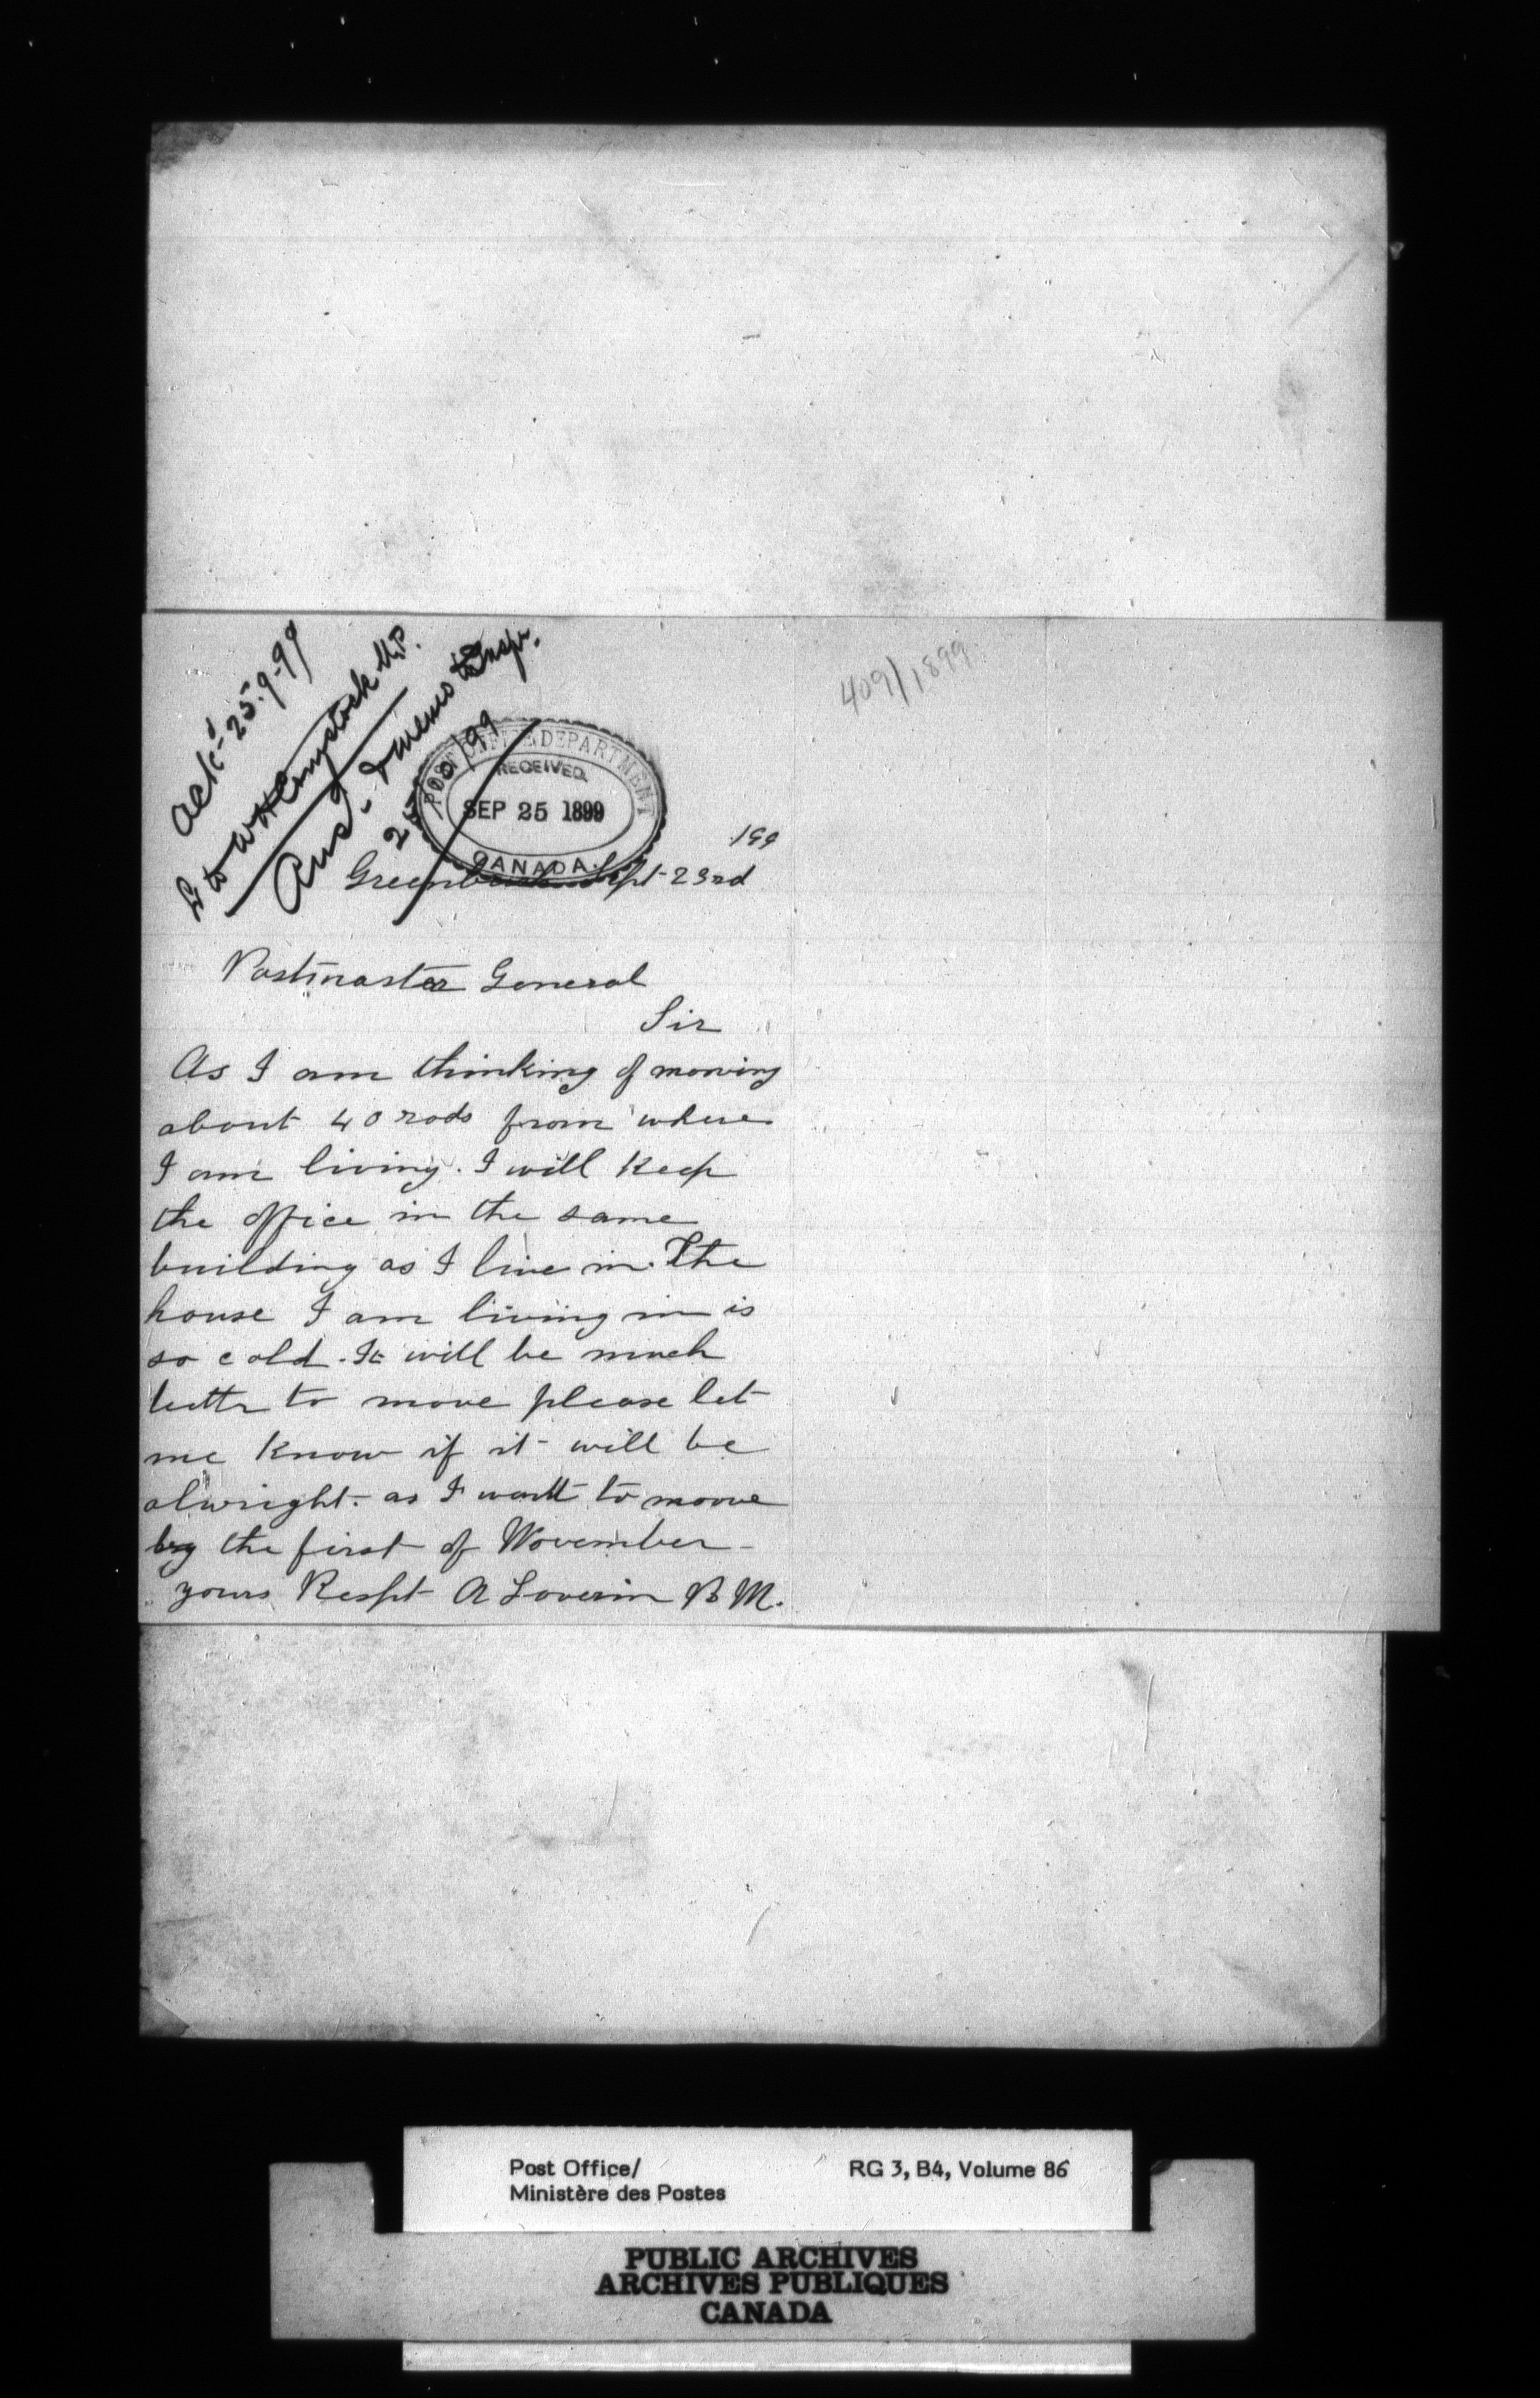 Ackd 25-9-99
L to W H Comstock M.P.
Ansd & memo to Inspr.
25/10/99
409/1899
POST OFFICE DEPARTMENT
RECEIVED
SEP 25 1899
CANADA.
199
Greenbush Sept 23rd
Postmaster General
Sir
As I am thinking of mooving
about 40 rods from where
I am living. I will Keep
the office in the same
building as I live in. The
house I am living in is
so cold. It will be much
bettr to move please let
me Know if it will be
alwright. as I want to moove
by the first of November
yours Respt A Loverin P M.
Post Office/
Ministère des Postes
RG 3, B4, Volume 86
PUBLIC ARCHIVES
ARCHIVES PUBLIQUES
CANADA